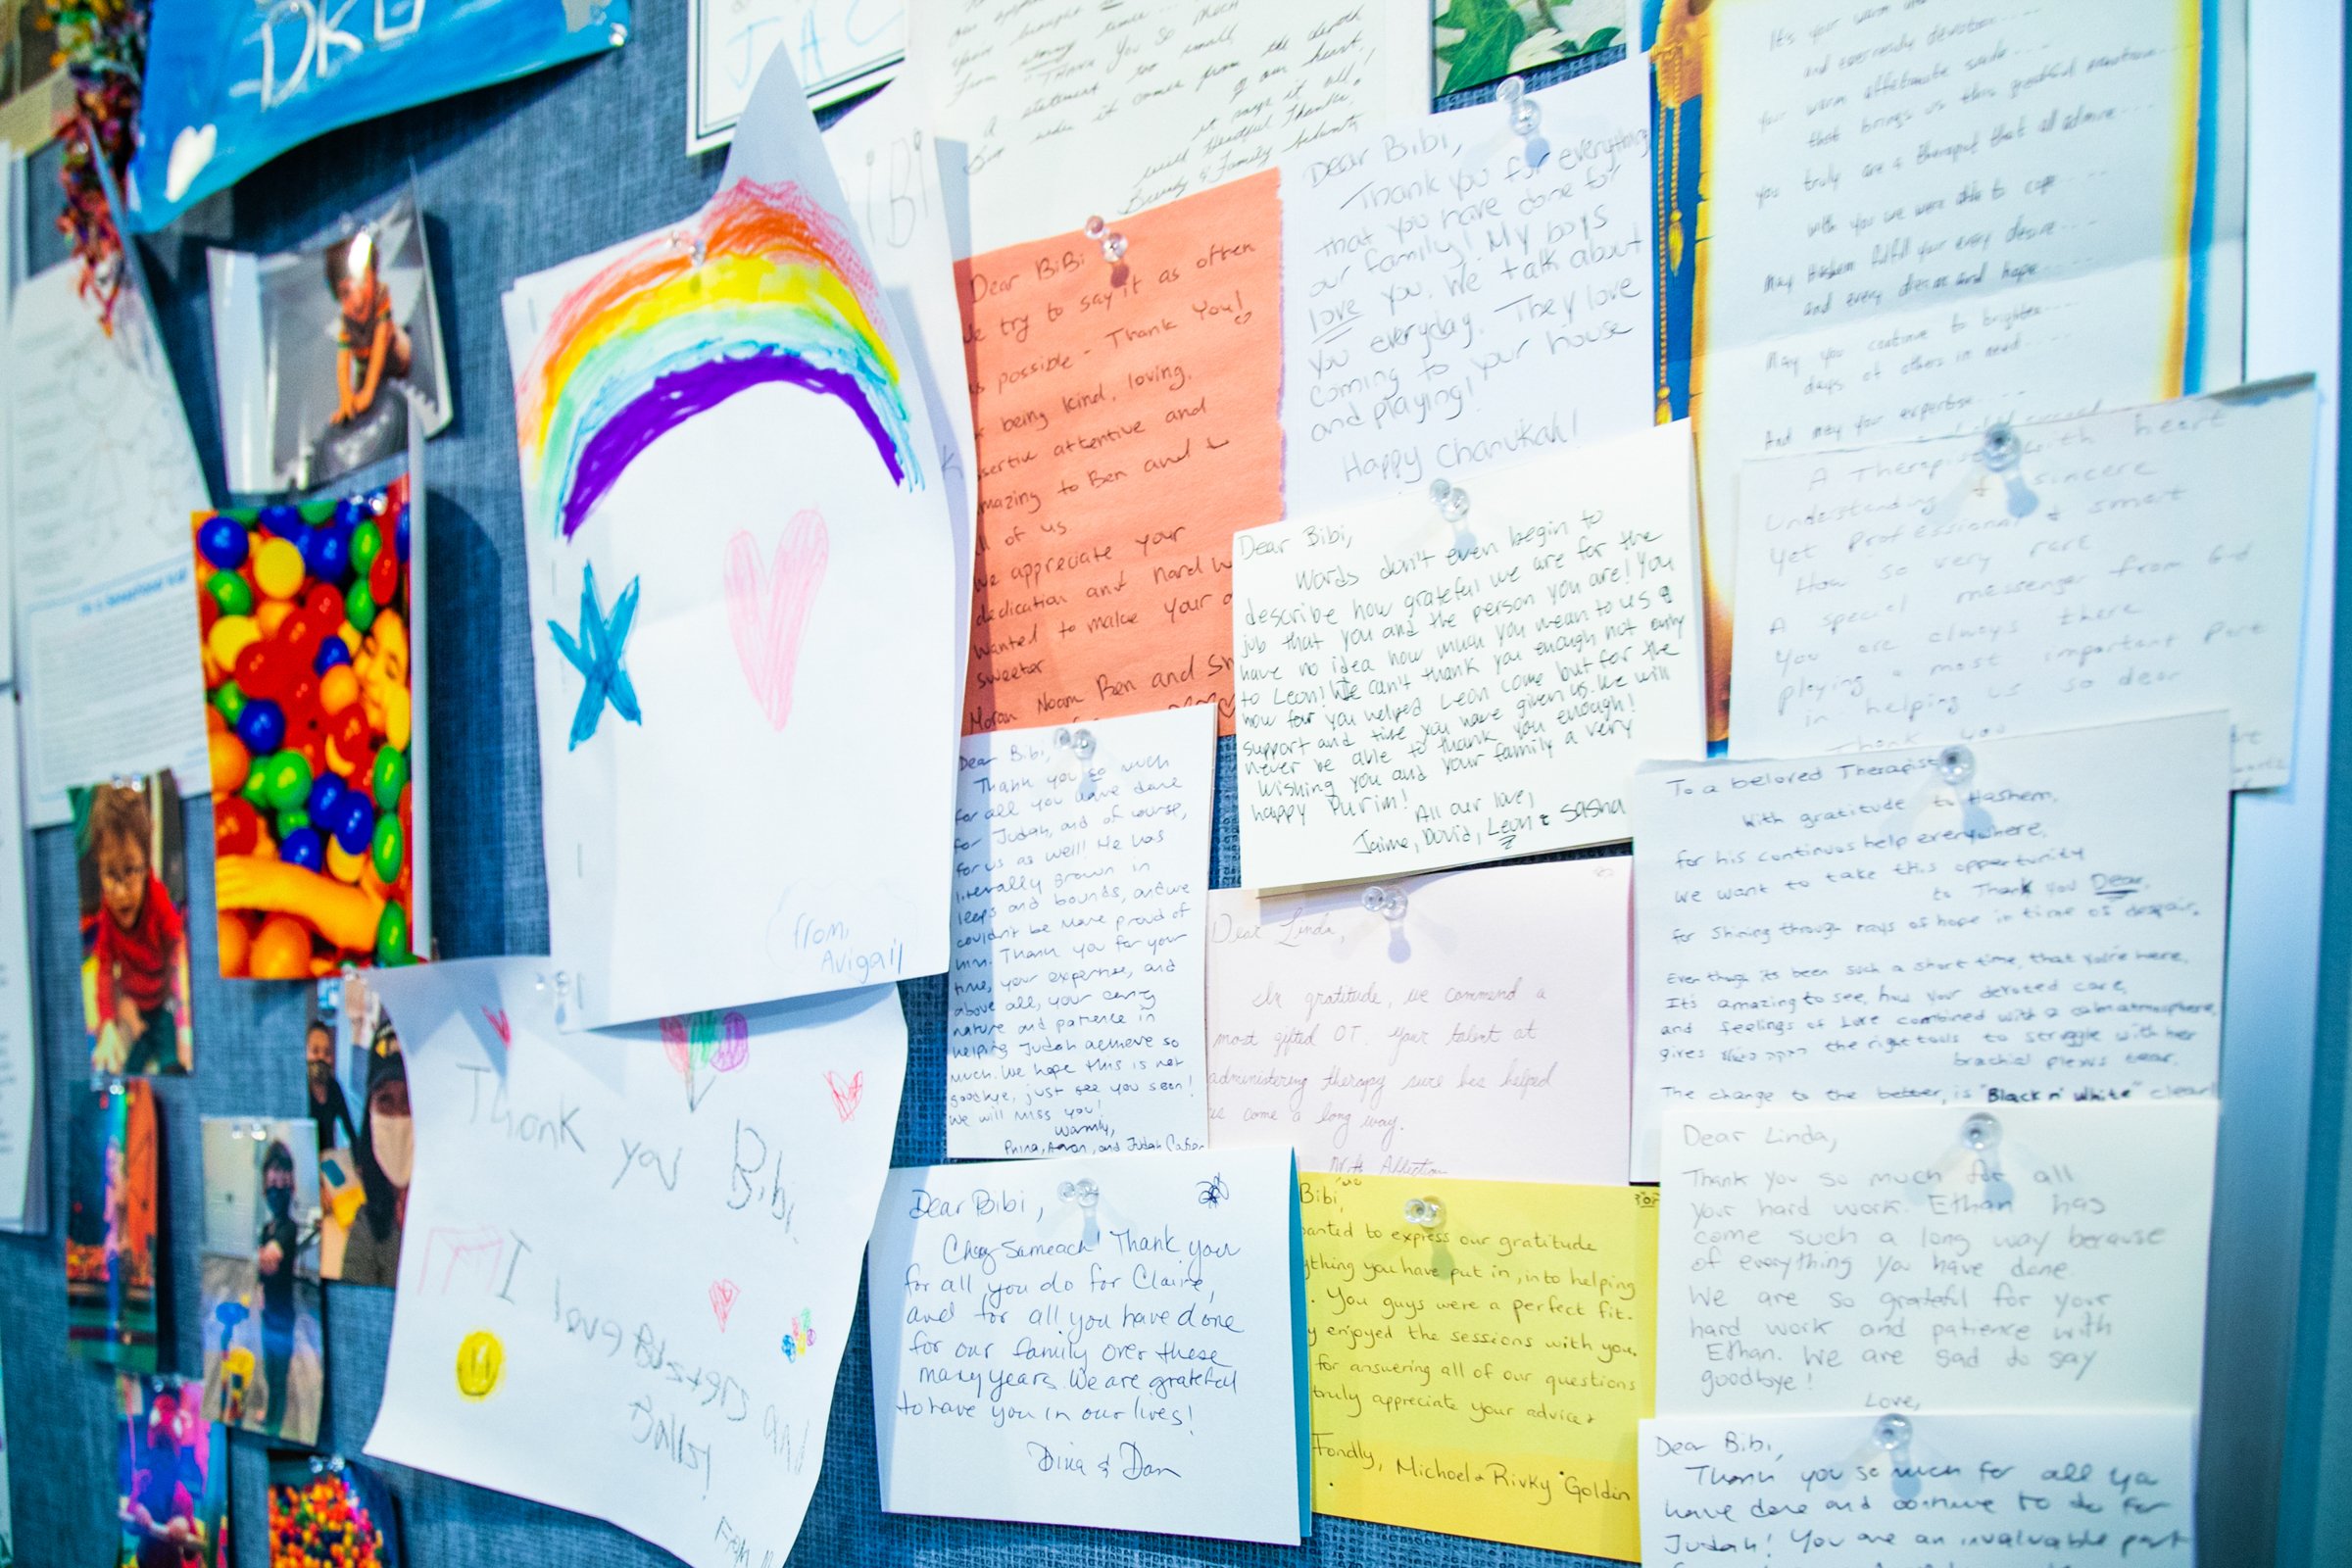 DKG
JAC
Thank You so much
a statement too small,
But when it comes from the depth
of our heart.
it says it all!
with Heartful Thanks,
& Family
BiBi
from,
Avigail
Thank you Bibi
I love
Ballz!
Dear BiBi
try to say it as often
as possible - Thank You!
being kind, loving,
attentive and
amazing to Ben and
all of us
We appreciate your
dedication and hard
wanted to make your
sweeter
Moran Noam Ben and
Dear Bibi,
Thank you for everything
that you have done for
our family! My boys
love you. We talk about
you everyday. They love
coming to your house
and playing!
Happy Chanukah!
Dear Bibi,
Words don't even begin to
describe how grateful we are for the
job that you and the person you are! You
have no idea how much you mean to us &
to Leon! We can't thank you enough not only
how far you helped Leon come but for the
support and time you have given us. We will
never be able to thank you enough!
Wishing you and your family a very
happy Purim!
All our love,
Jaime, David, Leon & Sasha
Dear Bibi,
Thank you so much
for all you have done
for Judah, and of course,
for us as well! He has
literally grown in
leaps and bounds, and we
couldn't be more proud of
him. Thank you for your
time, your expertise, and
above all, your caring
nature and patience in
helping Judah achieve so
much. We hope this is not
goodbye, just see you soon!
We will miss you!
Warmly,
and Judah
Dear Linda,
In gratitude, we commend a
most gifted OT. Your talent at
administering therapy sure has helped
us come a long way.
With Affection
Dear Bibi,
Chag Sameach! Thank you
for all you do for Claire,
and for all you have done
for our family over these
many years. We are grateful
to have you in our lives!
Dina & Dan
Bibi,
wanted to express our gratitude
you have put in, into helping
. You guys were a perfect fit.
enjoyed the sessions with you.
for answering all of our questions
truly appreciate your advice
Fondly, Michoel & Rivky Goldin
It's your warm
and everready devotion....
Your warm affectionate smile....
that brings us this grateful emotion....
you truly are a therapist that all admire....
with you we were able to cope....
May Hashem fulfill your every desire....
and every dream and hope....
May you continue to brighten....
days of others in need....
And may your expertise....
A Therapist with heart
Understanding & sincere
Yet Professional & smart
How so very rare
A special messenger from G-d
You are always there
playing a most important part
in helping us so dear
Thank you
To a beloved Therapist
With gratitude to Hashem,
for his continuos help everywhere,
we want to take this opportunity
to Thank you Dear,
for shining through rays of hope in time of despair.
Even though its been such a short time, that you're here,
It's amazing to see, how your devoted care,
and feelings of Love combined with a calm atmosphere,
gives the right tools to struggle with her
brachial plexus tear.
The change to the better, is "Black n' White" clear!
Dear Linda,
Thank you so much for all
your hard work. Ethan has
come such a long way because
of everything you have done
We are so grateful for your
hard work and patience with
Ethan. We are sad to say
goodbye!
Love,
Dear Bibi,
Thank you so much for all you
have done and continue to do for
Judah! You are an invaluable part